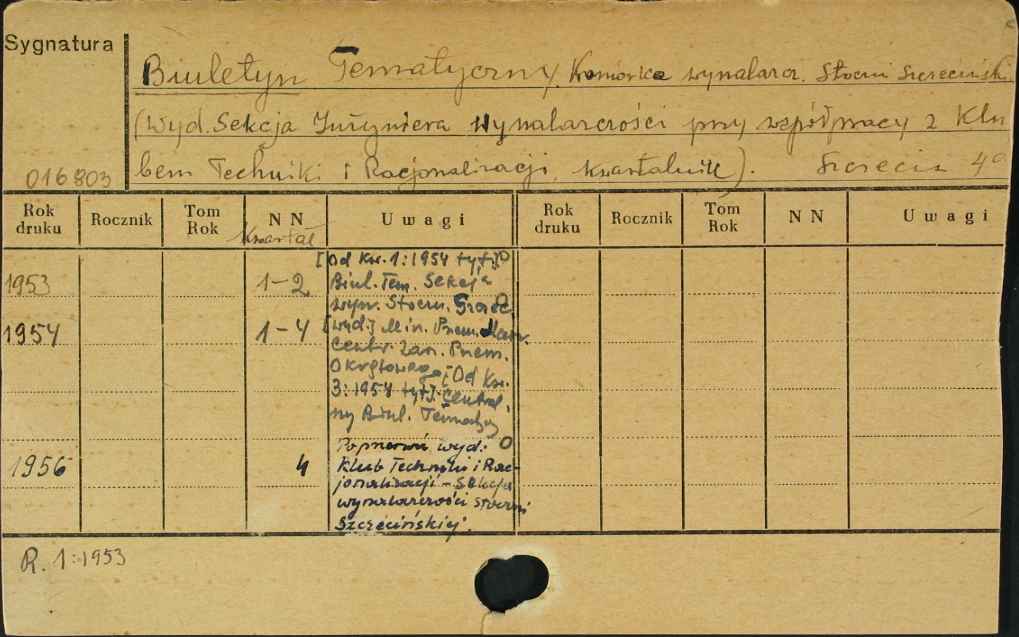 Sygnatura
Biuletyn Tematyczny. Komórka wynalazcz. Stoczni Szczecińsk.
(Wyd. Sekcja Inżyniera Wynalazczości przy współpracy z Klu
bem Techniki i Racjonalizacji, kwartalnik). Szczecin 4°
016803
Rok druku Rocznik Tom Rok NN Uwagi Rok druku Rocznik Tom Rok NN Uwagi
Kwartał
[Od kw. 1:1954 tyt.]
1953 1-2 Biul. Tem. Sekcja
wyn. Stoczn.
1954 1-4 [wyd.] Min. Przem. Masz.
Centr. Zarz. Przem.
Okrętowego [Od kw.
3:1954 tyt.]: Central
ny Biul. Tematycz
Poprzednio wyd:
1956 4 Klub Techniki i Rac-
jonalizacji - Sekcja
wynalazczości stoczni
Szczecińskiej.
R. 1:1953